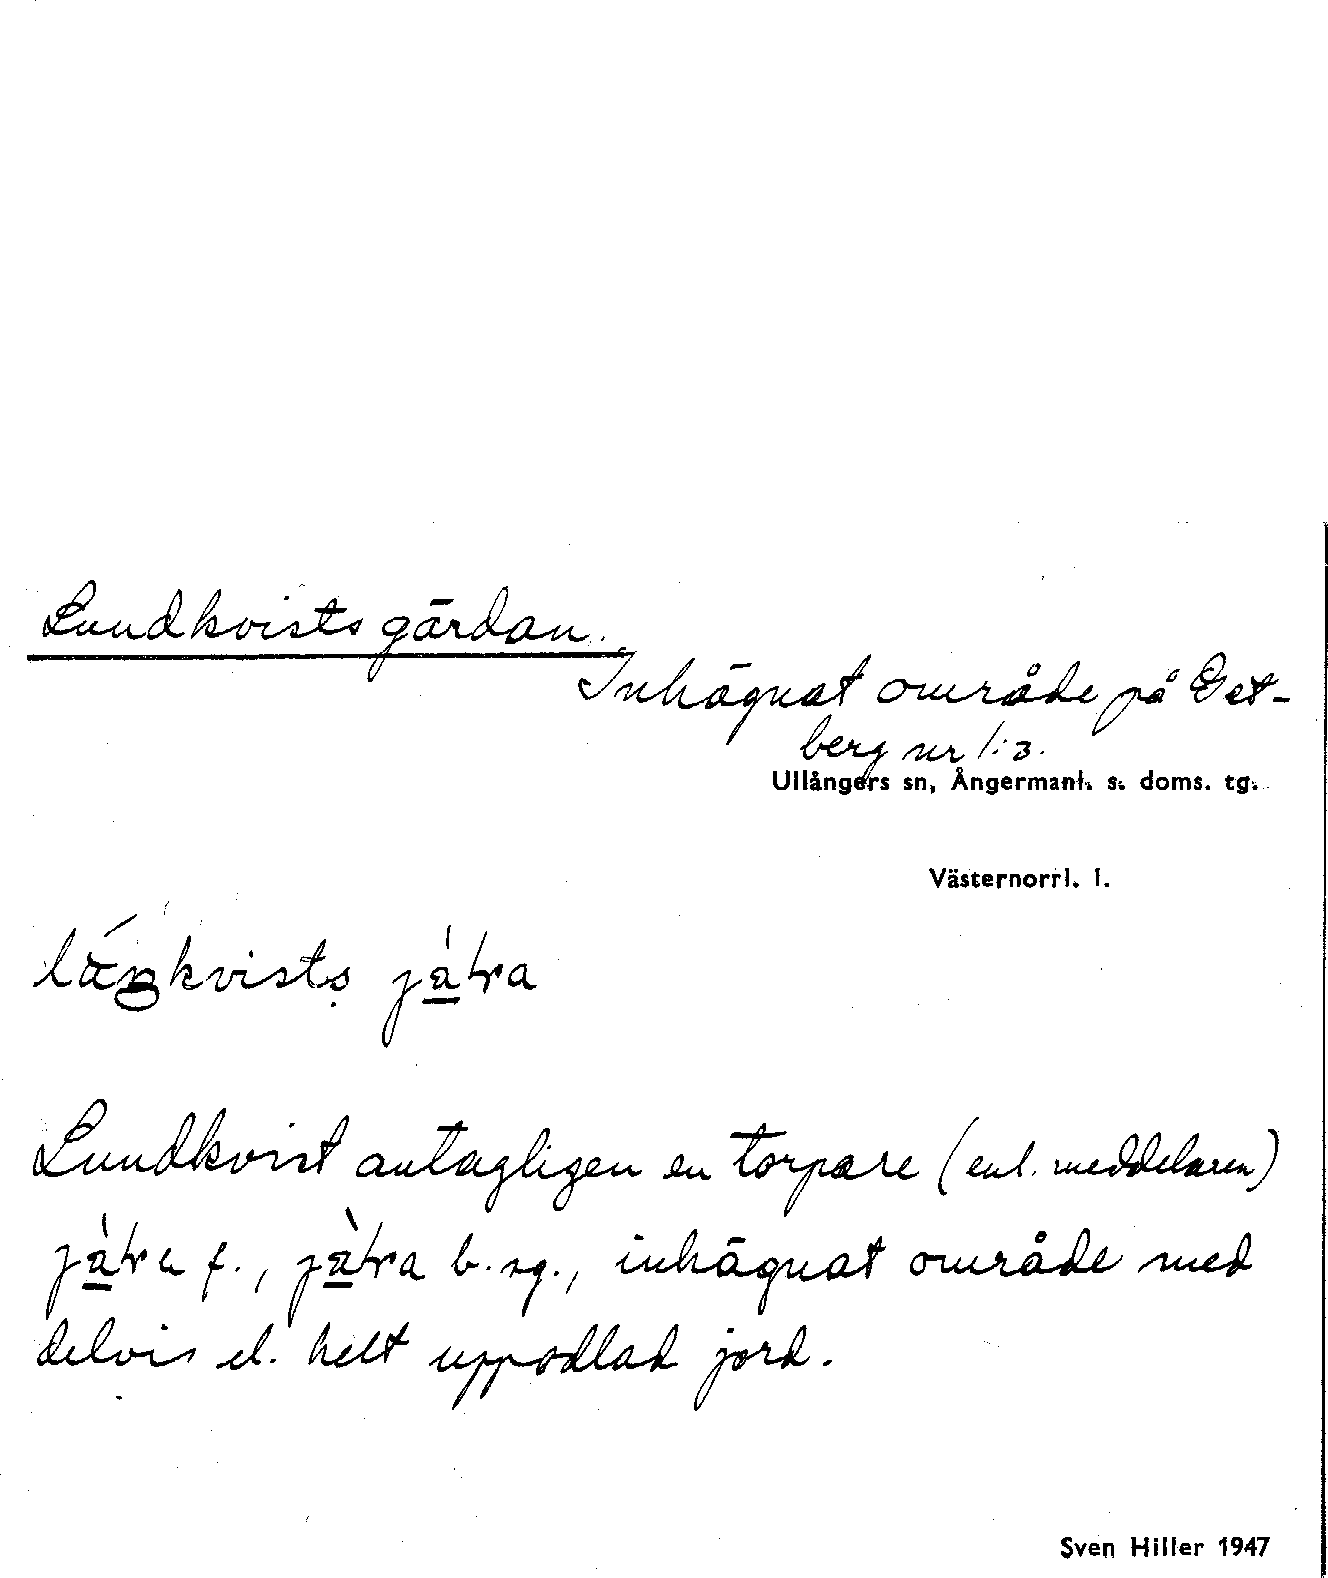 Lundkvistsgärdan.
Inhägnat område på Get-
berg nr 1:3.
Ullångers sn, Ångermanl. s. doms. tg.
Västernorrl. l.
Lundkvist antagligen en torpare (enl. meddelaren)
f., b. sg., inhägnat område med
delvis el. helt uppodlad jord.
Sven Hiller 1947